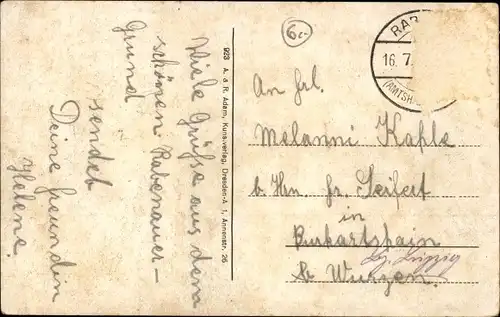 Viele Grüße aus dem
schönen Rabenauer-
Grund
sendet
Deine Freundin
Helene.
923 A. & R. Adam, Kunstverlag, Dresden-A. 1, Annenstr. 25
6.-
RAB
16.7.
(AMTSH
An Frl.
Melanni
b. Hrn. Fr. Seifert
in
Burkartshain
b. Wurzen.
Bz. Leipzig